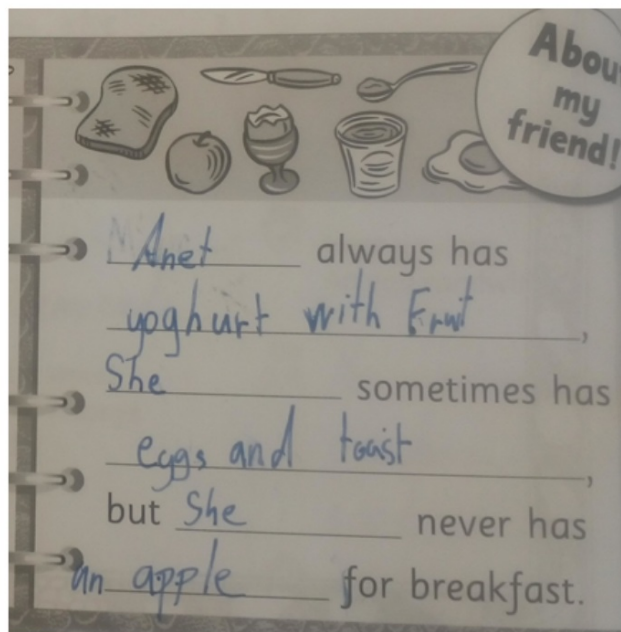 About
my
friend!
Anet always has
yoghurt with Fruit,
She sometimes has
eggs and toast,
but She never has
an apple for breakfast.